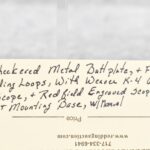 heckered Metal Buttplate, + F
ling Loops, With Weaver K-4
cope, + Redfield Engraved Scop
r Mounting Base, w/Manual
Price
www.reddingauction.com
717-334-6941